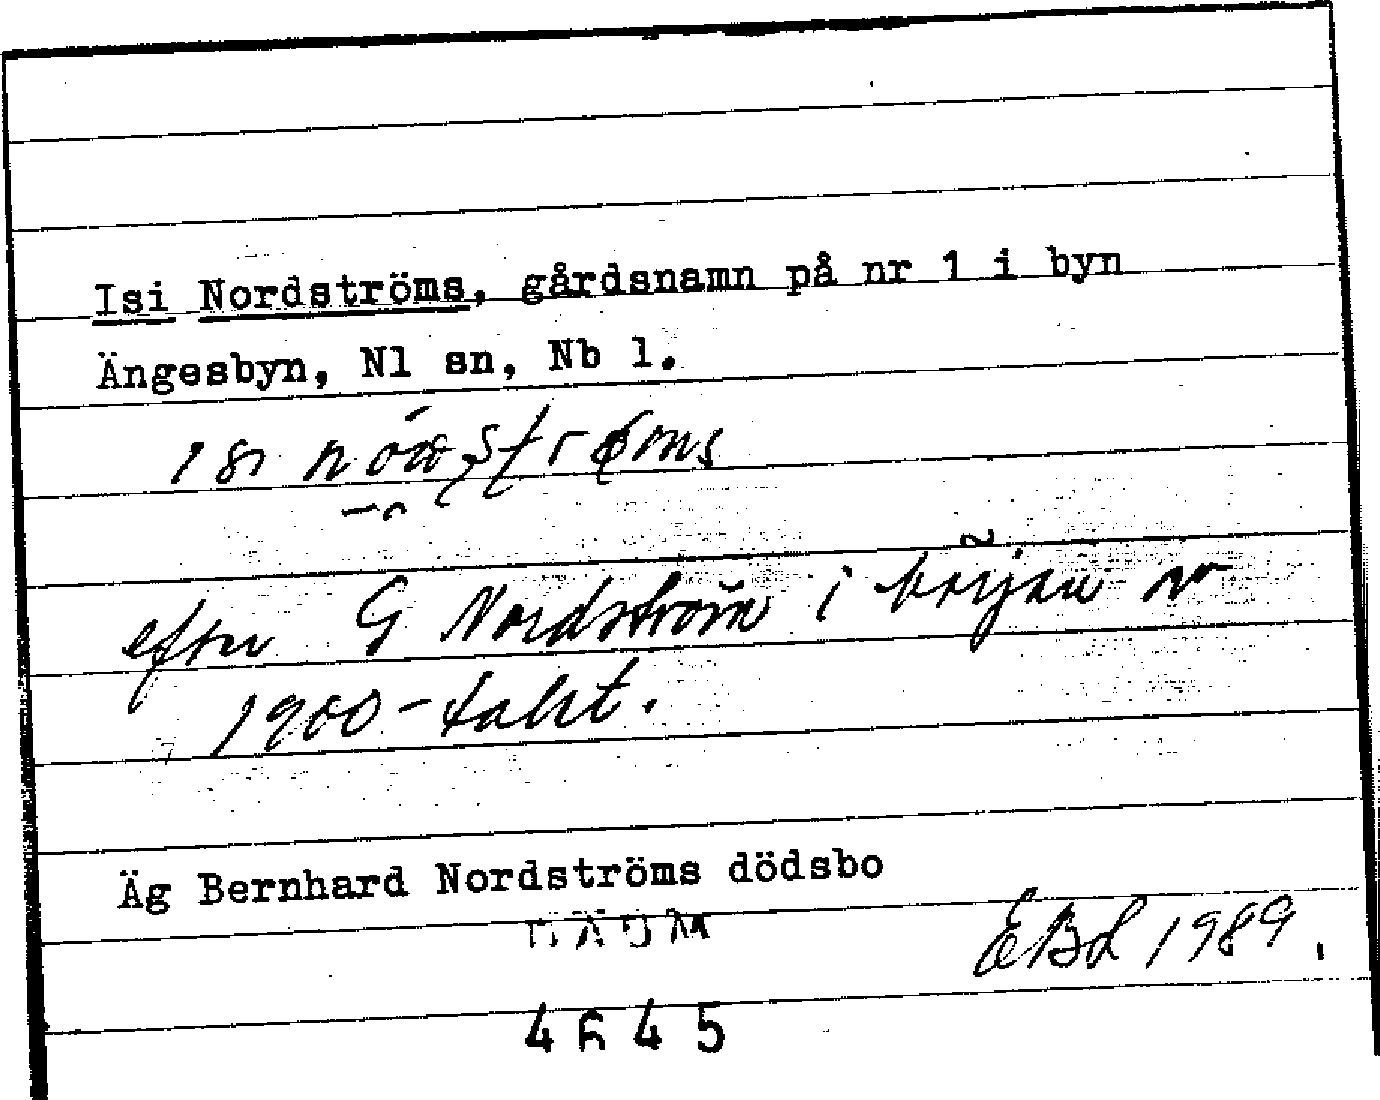 Isi Nordströms, gårdsnamn på nr 1 i byn
Ängesbyn, Nl sn, Nb l.
isi
efter G Nordström i början av
1900-talet.
Äg Bernhard Nordströms dödsbo
DAUM
EBL 1989.
4645